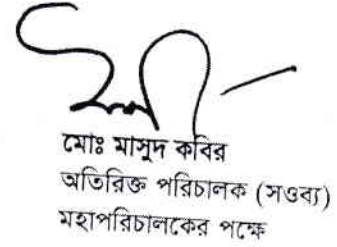 মোঃ মাসুদ কবির
অতিরিক্ত পরিচালক (সওব্য)
মহাপরিচালকের পক্ষে